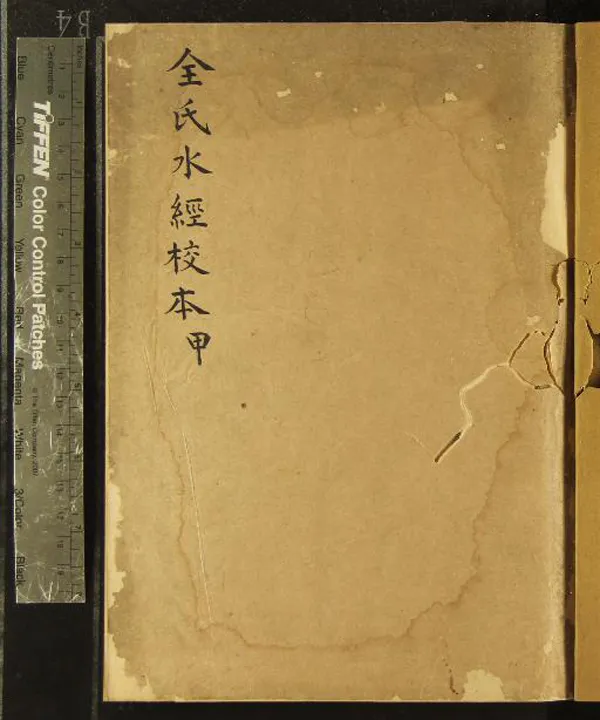 全氏水經校本甲
B4
Inches
Centimetres
TIFFEN Color Control Patches
© The Tiffen Company, 2007
Blue
Cyan
Green
Yellow
Red
Magenta
White
3/Color
Black